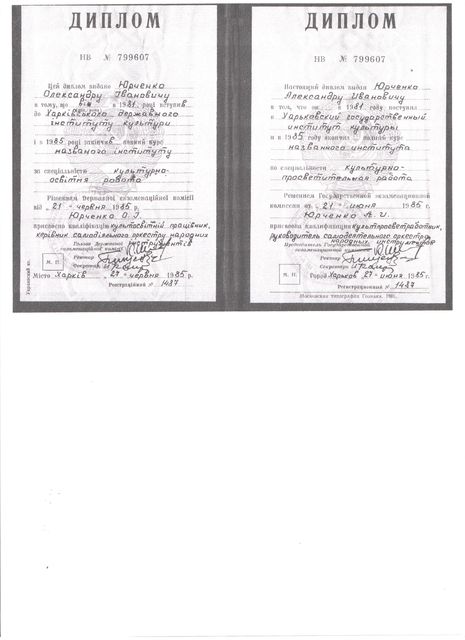 ДИПЛОМ
НВ № 799607
Цей диплом видано Юрченко
Олександру Івановичу
в тому, що він в 1981 році вступив
до Харківського державного
інституту культури
і в 1985 році закінчив повний курс
названого інституту
за спеціальністю культурно-
освітня робота
Рішенням Державної екзаменаційної комісії
від „21" червня 1985 р.
Юрченко О. І.
присвоєно кваліфікацію культосвітній працівник,
керівник самодіяльного оркестру народних
інструментів
Голова Державної
екзаменаційної комісії
Ректор
Секретар
М. П.
Місто Харків „27" червня 1985 р.
Реєстраційний № 1437
Украинский яз.
ДИПЛОМ
НВ № 799607
Настоящий диплом выдан Юрченко
Александру Ивановичу
в том, что он в 1981 году поступил
в Харьковский государственный
институт культуры
и в 1985 году окончил полный курс
названного института
по специальности культурно-
просветительная работа
Решением Государственной экзаменационной
комиссии от „21" июня 1985 г.
Юрченко А. И.
присвоена квалификация культпросветработник,
руководитель самодеятельного оркестра
народных инструментов
Председатель Государственной
экзаменационной комиссии
Ректор
Секретарь
М. П.
Город Харьков „27" июня 1985 г.
Регистрационный № 1437
Московская типография Гознака. 1981.